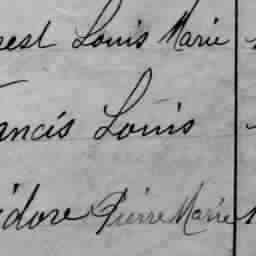 nest Louis Marie
ancis Louis
idore Pierre Marie